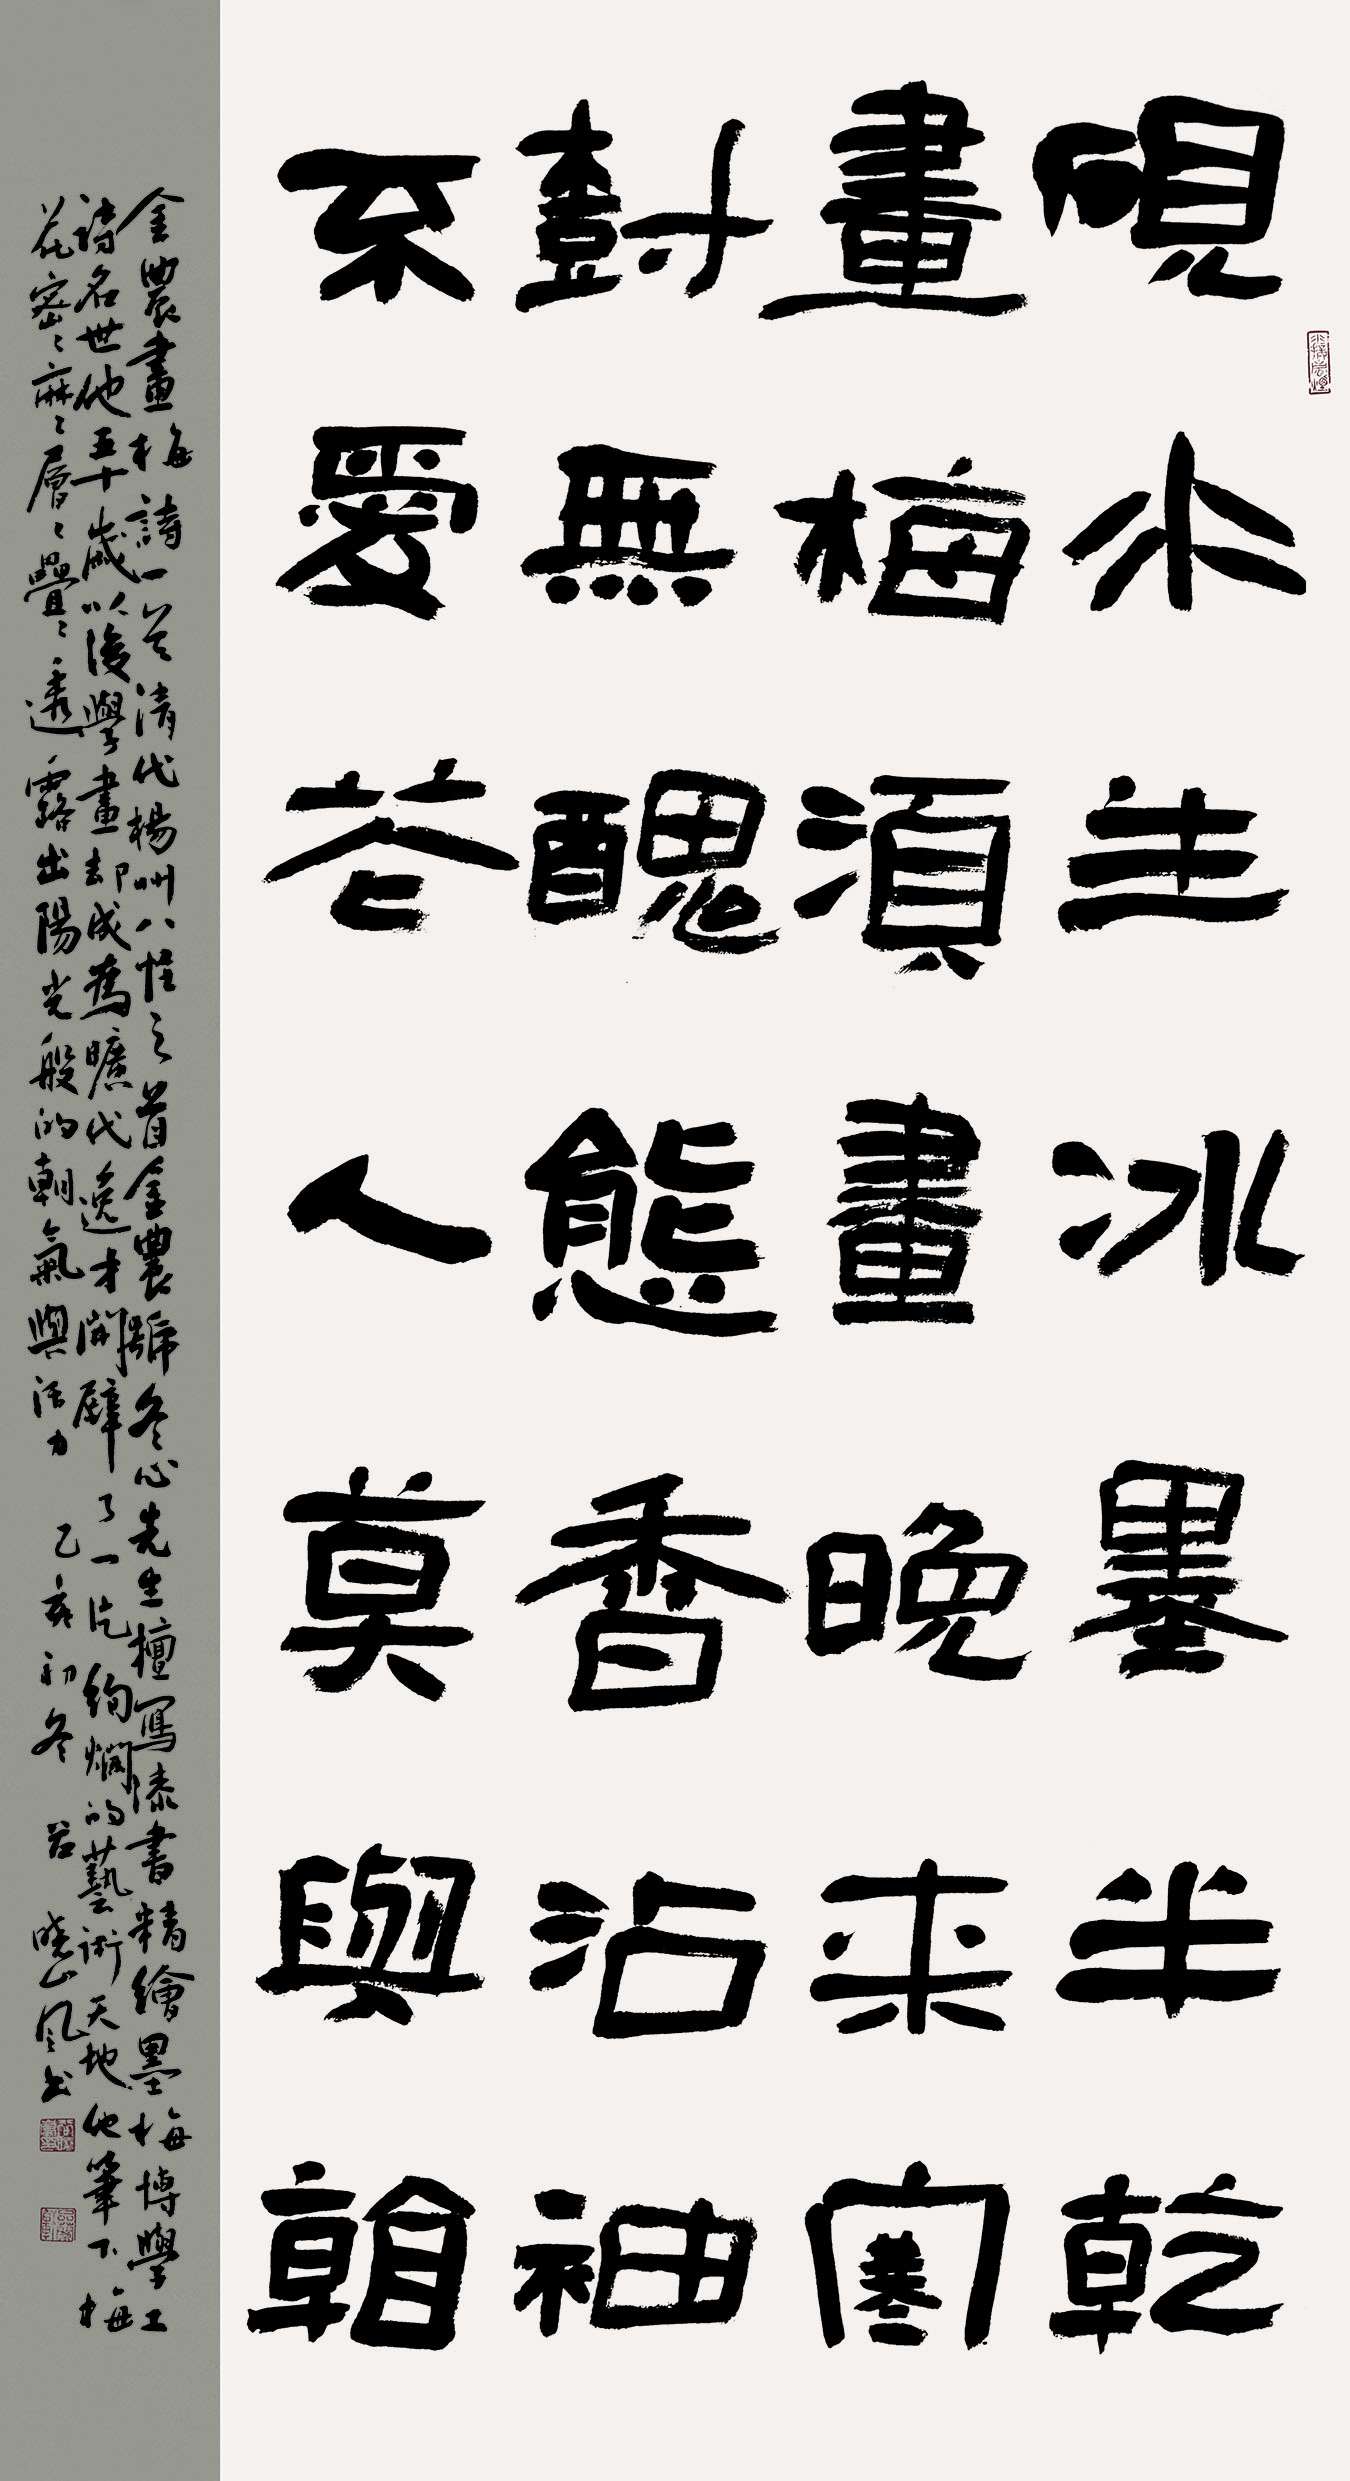 硯水生冰墨半乾
畫梅須畫晚来寒
對無醜態香沾袖
不愛花人莫與看
金農畫梅詩一首清代楊州八怪之首金農號冬心先生擅寫漆書精繪墨梅博學工
詩名世他五十歲以後學畫却成為曠代逸才開辟了一片絢爛的藝術天地他筆下梅
花密密麻麻層層疊疊透露出陽光般的朝氣與活力 乙亥初冬 岩 曉山風書